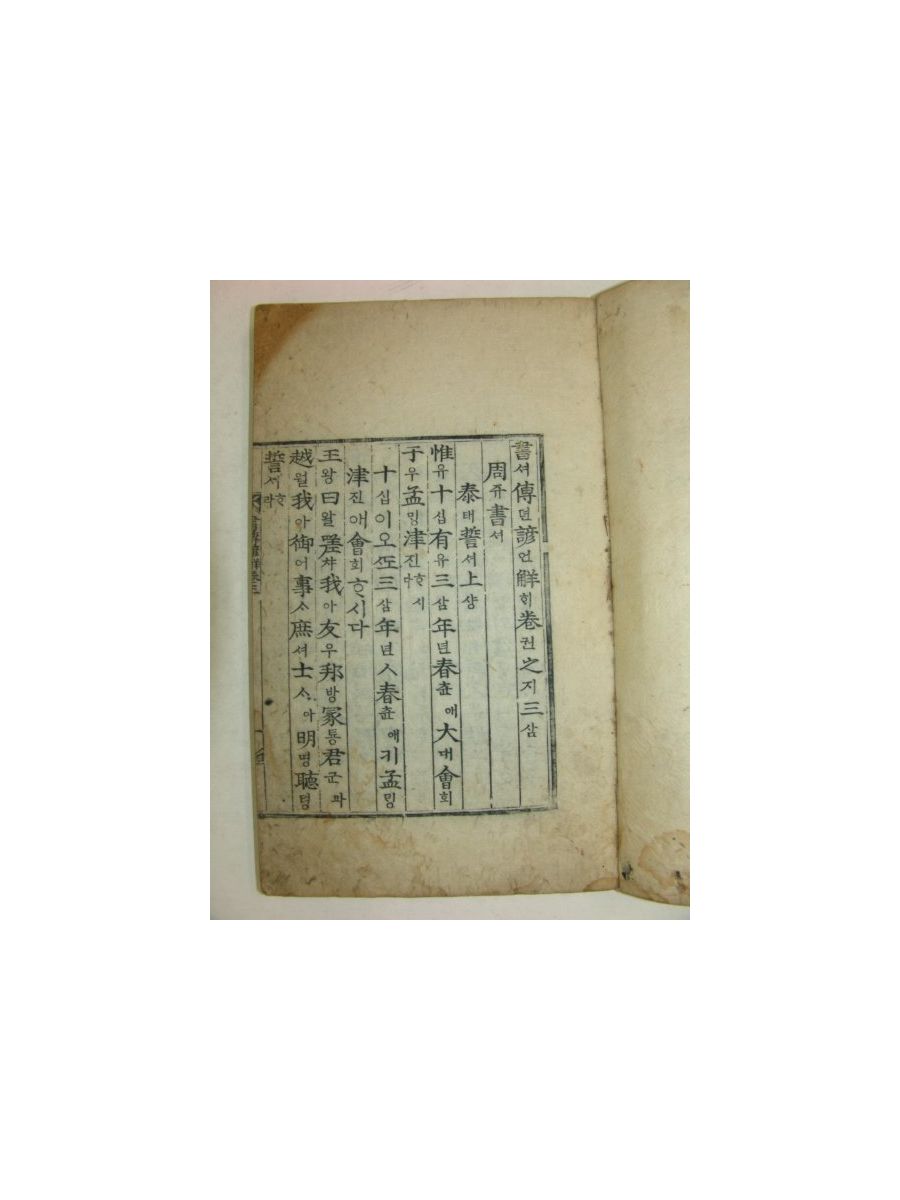 書셔傳뎐諺언觧ᄒᆡ卷권之지三삼
周쥬書셔
泰태誓셔上샹
惟유十십有유三삼年년春츈애大대會회
于우孟ᄆᆡᆼ津진ᄒᆞ시다
十십이오ᄯᅩ三삼年년ㅅ春츈애키孟ᄆᆡᆼ
津진애會회ᄒᆞ시다
王왕曰왈嗟차我아友우邦방冢통君군과
越월我아御어事ᄉᆞ庶셔士ᄉᆞ아明명聽텽
誓셔ᄒᆞ라
書傳諺觧卷三